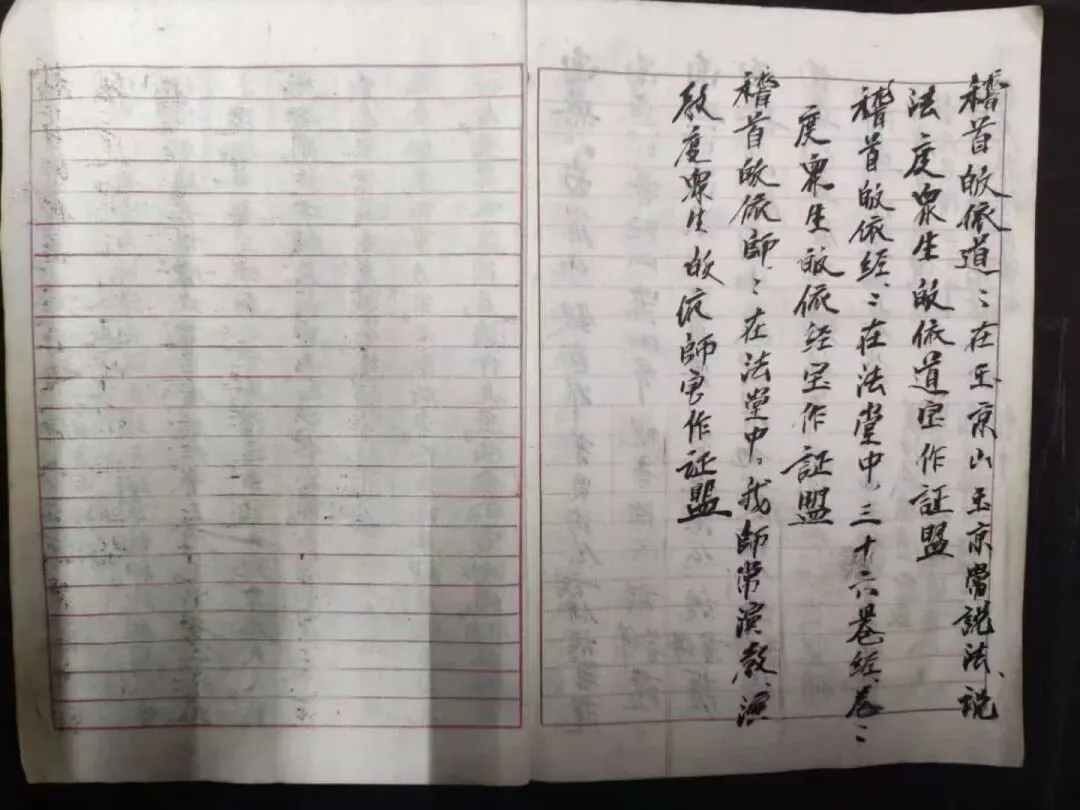 稽首皈依道〻在玉京山玉京常説法、説
法度衆生皈依道宝作証盟
稽首皈依经、〻在法堂中、三十六卷经、卷〻
度衆生皈依经宝作証盟
稽首皈依師、〻在法堂中、我師常演教、演
教度衆生皈依師宝作証盟